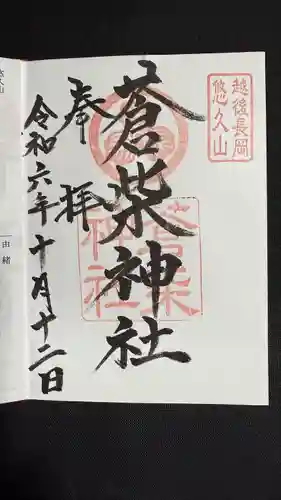 越後長岡
悠久山
蒼柴神社
蒼柴
神社
奉拝
令和六年十月十二日
由緒